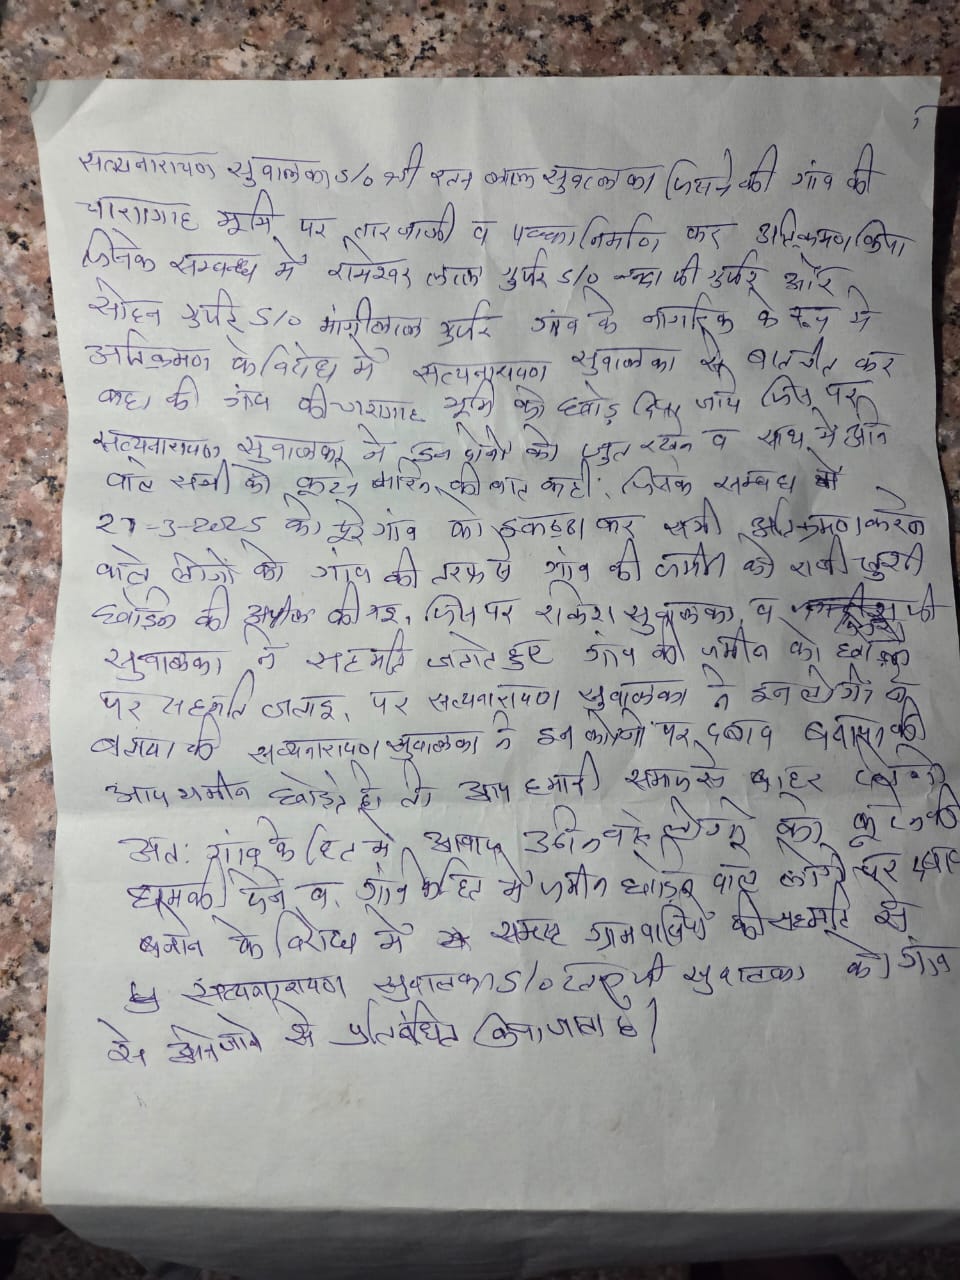 सत्यनारायण सुवालका S/o श्री रतन लाल सुवालका जिसने की गांव की
चारागाह भूमि पर तारजाली व पक्का निर्माण कर अतिक्रमण किया
जिसके सम्बन्ध में रामेश्वर लाल गुर्जर S/o जी गुर्जर और
सोहन गुर्जर S/o मांगीलाल गुर्जर गांव के नागरिक के रूप में
अतिक्रमण के विरोध में सत्यनारायण सुवालका से बातचीत कर
कहा की गांव की चरागाह भूमि को छोड़ दिया जाये जिस पर
सत्यनारायण सुवालका ने इन दोनों को व साथ में आने
वाले सभी को कूटने की बात कही. जिसके सम्बन्ध में
27-3-2025 को पूरे गांव को इकठ्ठा कर सभी अतिक्रमण करने
वाले लोगों को गांव की तरफ से गांव की जमीन को राजी खुशी
छोड़ने की अपील की गइ. जिस पर राकेश सुवालका व जी
सुवालका ने सहमति जताते हुए गांव की जमीन को छोड़ने
पर सहमति जताइ. पर सत्यनारायण सुवालका ने इन लोगों ने
बताया की सत्यनारायण सुवालका ने इन लोगों पर दबाव बनाया की
आप जमीन छोड़ते हो तो आप हमारी समाज से बाहर
अत: गांव के हित में आवाज उठाने वाले लोगों को कूटने की
धमकी देने व गांव के हित में जमीन छोड़ने वाले लोगों पर दबाव
बनाने के विरोध में समस्त ग्रामवासियों की सहमति से
सत्यनारायण सुवालका S/o जी सुवालका को गांव
से आने जाने से प्रतिबंधित किया जाता है।